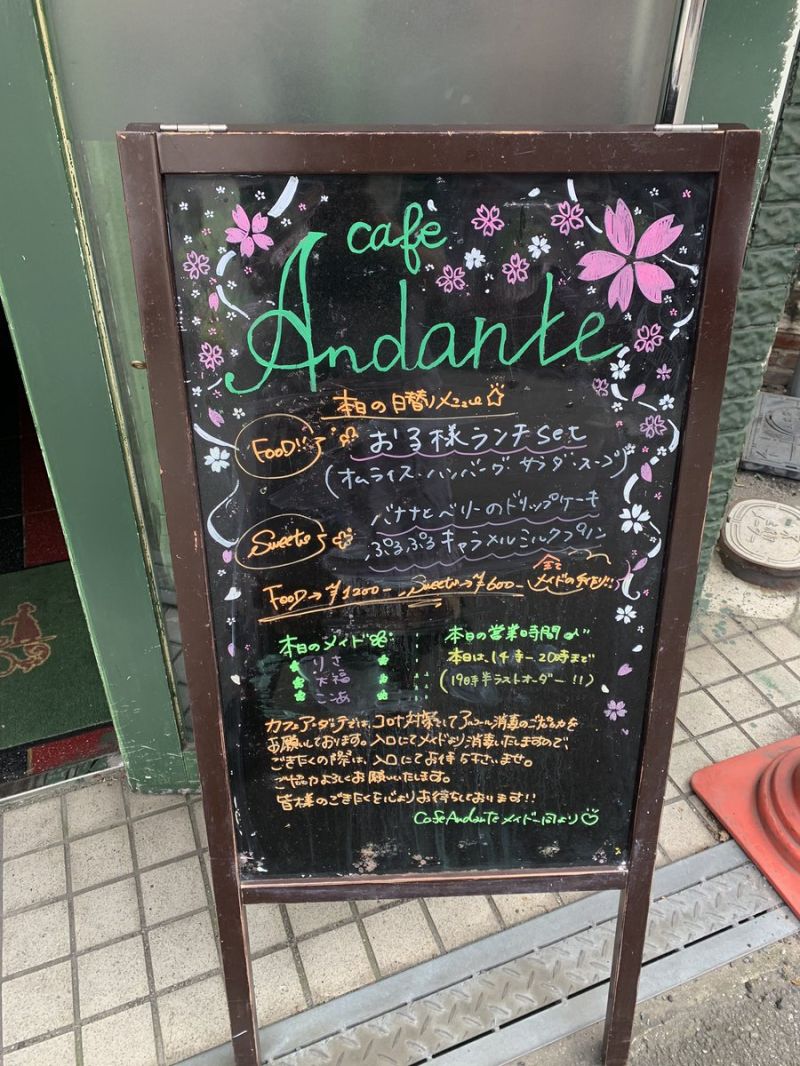 cafe
Andante
本日の日替りメニュー☆
FOOD!!
お子様ランチset
(オムライス・ハンバーグ サラダ・スープ)
Sweets
バナナとベリーのドリップケーキ
ぷるぷるキャラメルミルクプリン
FOOD→¥1200- Sweets→¥600-
全て
メイドの手作り!!
本日のメイド
りさ
大福
こあ
本日の営業時間♪
本日は、14時ー20時まで
(19時半ラストオーダー!!)
カフェアンダンテでは、コロナ対策としてアルコール消毒のご協力を
お願いしております。入口にてメイドより消毒いたしますので、
ごきたくの際は、入口にてお待ち下さいませ。
ご協力よろしくお願いいたします。
皆様のごきたくを心よりお待ちしております!!
Cafe Andante メイド一同より♡